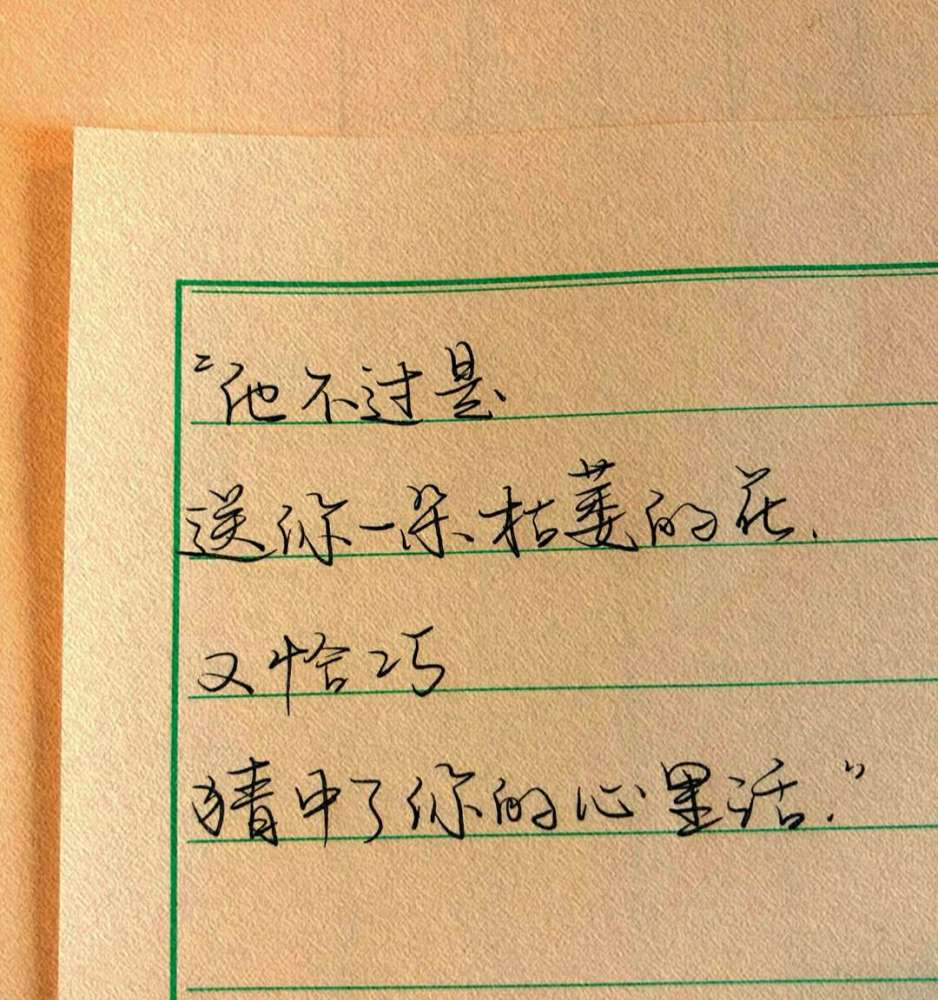 “他不过是、
送你一朵枯萎的花.
又恰巧
猜中了你的心里话.”